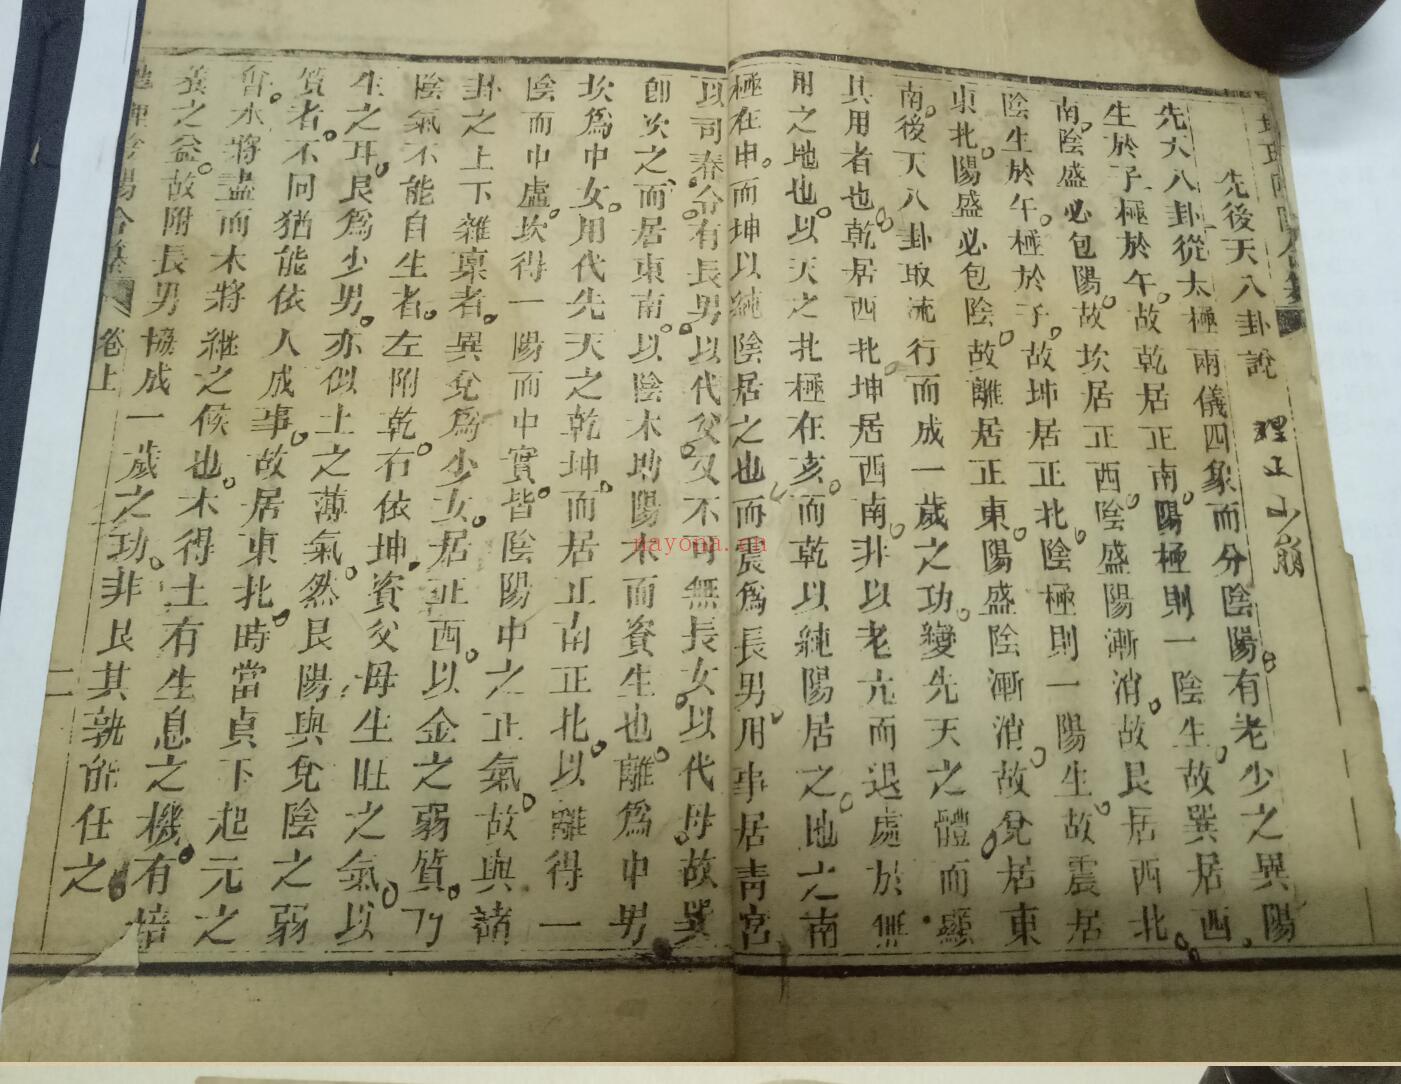 先後天八卦說
先天八卦從太極兩儀四象而分陰陽有老少之異陽
生於子極於午故乾居正南陽極則一陰生故巽居西
南陰盛必包陽故坎居正西陰盛陽漸消故艮居西北
陰生於午極於子故坤居正北陰極則一陽生故震居
東北陽盛必包陰故離居正東陽盛陰漸消故兌居東
南後天八卦取流行而成一歲之功變先天之體而顯
其用者也乾居西北坤居西南非以老亢而退處於無
用之地也以天之北極在亥而乾以純陽居之地之南
極在申而坤以純陰居之也而震為長男用事居青宮
以司春令有長男以代父又不可無長女以代母故巽
即次之而居東南以陰木助陽木而資生也離為中男
坎為中女用代先天之乾坤而居正南正北以離得一
陰而中虛坎得一陽而中實皆陰陽中之正氣故與諸
卦之上下雜稟者異兌為少女居正西以金之弱質乃
陰氣不能自生者左附乾右依坤資父母生旺之氣以
生之耳艮為少男亦似土之薄氣然艮陽與兌陰之弱
質者不同猶能依人成事故居東北時當貞下起元之
會水將盡而木將繼之候也木得土有生息之機有培
養之益故附長男協成一歲之功非艮其孰能任之
卷上
二
nayona.cn